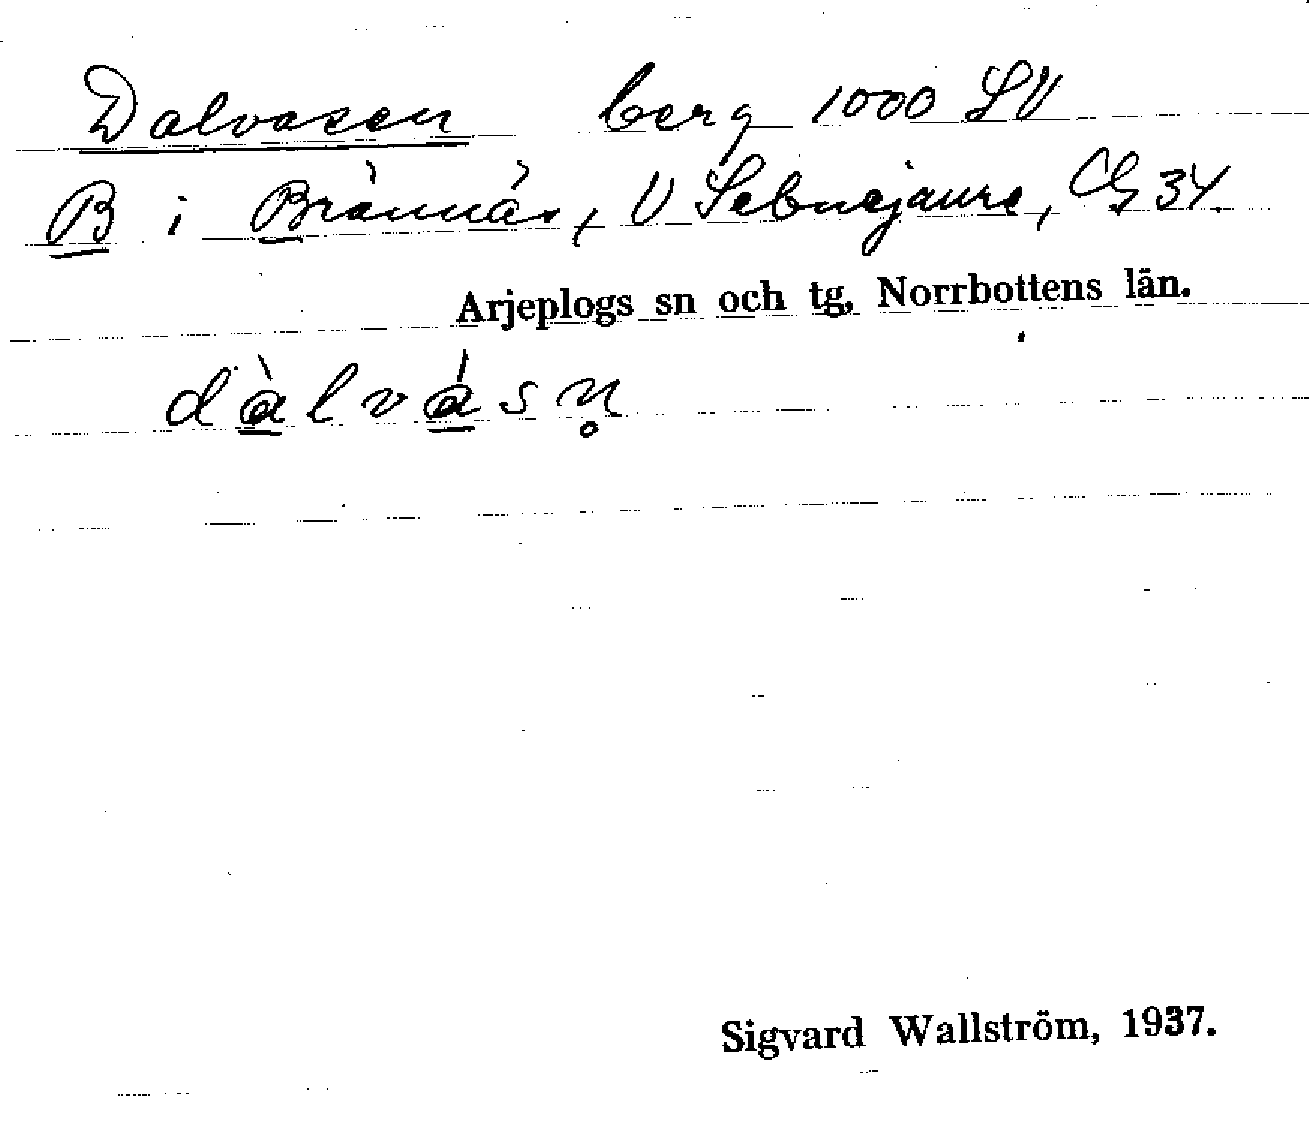 Dalvasen berg 1000 SV
B i Brännäs, V Sebnejaure, CG 34.
Arjeplogs sn och tg, Norrbottens län.
dàlvásn̥
Sigvard Wallström, 1937.